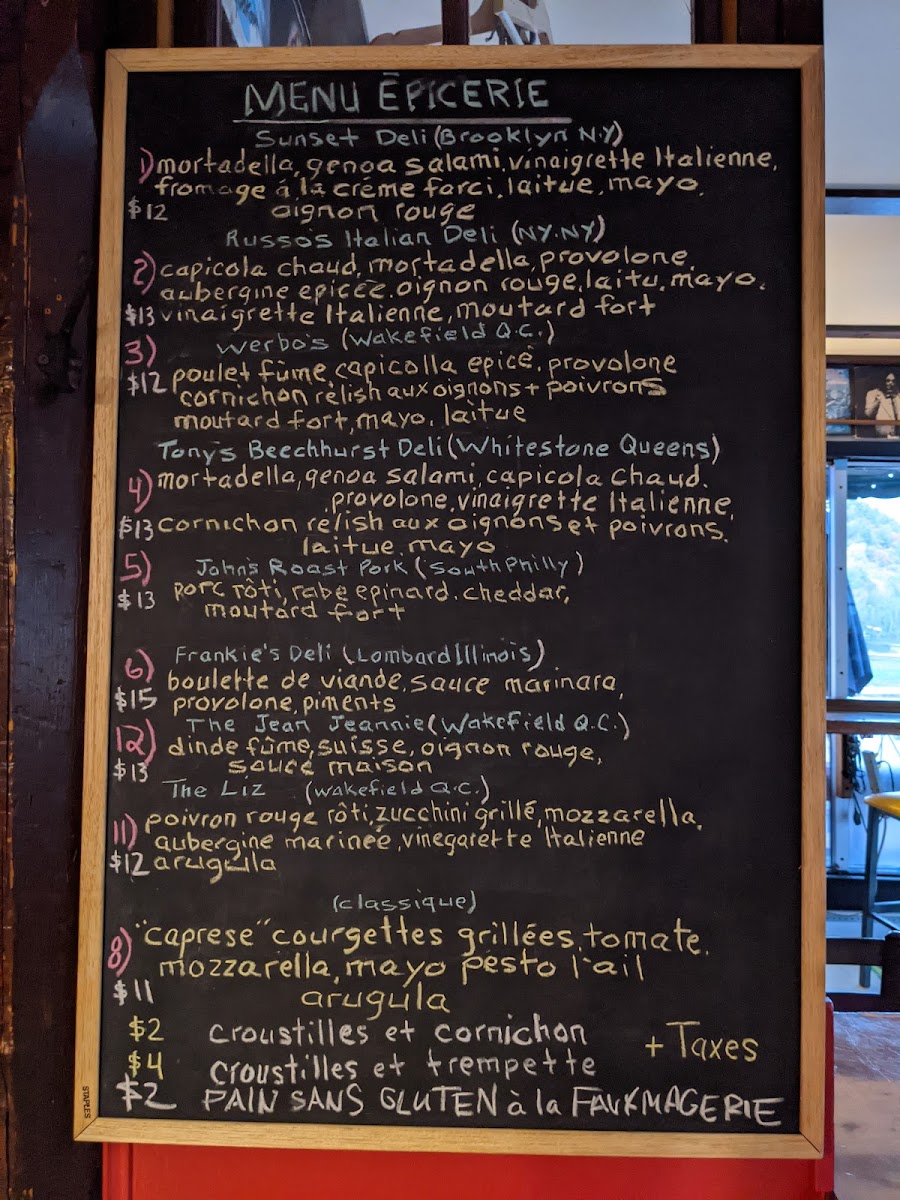 MENU ÉPICERIE
Sunset Deli (Brooklyn N.Y)
1) mortadella, genoa salami, vinaigrette Italienne,
fromage à la crème farci, laitue, mayo,
$12 oignon rouge
Russo's Italian Deli (NY.NY)
2) capicola chaud, mortadella, provolone,
aubergine epicée, oignon rouge, laitu, mayo,
$13 vinaigrette Italienne, moutard fort
3) Werbo's (Wakefield Q.C.)
$12 poulet fûme, capicolla epicé, provolone
cornichon relish aux oignons + poivrons
moutard fort, mayo, laitue
Tony's Beechhurst Deli (Whitestone Queens)
4) mortadella, genoa salami, capicola chaud,
provolone, vinaigrette Italienne,
$13 cornichon relish aux oignons et poivrons,
laitue, mayo
5) John's Roast Pork (South Philly)
$13 porc rôti, rabe epinard, cheddar,
moutard fort
6) Frankie's Deli (Lombard Illinois)
boulette de viande, sauce marinara,
$15 provolone, piments
12) The Jean Jeannie (Wakefield Q.C.)
dinde fûme, suisse, oignon rouge,
$13 sauce maison
The Liz (Wakefield Q.C.)
11) poivron rouge rôti, zucchini grillé, mozzarella,
aubergine marinée, vinegarette Italienne
$12 arugula
(classique)
8) "caprese" courgettes grillées, tomate,
mozzarella, mayo pesto l'ail
$11 arugula
$2 croustilles et cornichon
+ Taxes
$4 croustilles et trempette
$2 PAIN SANS GLUTEN à la FAUXMAGERIE
STAPLES